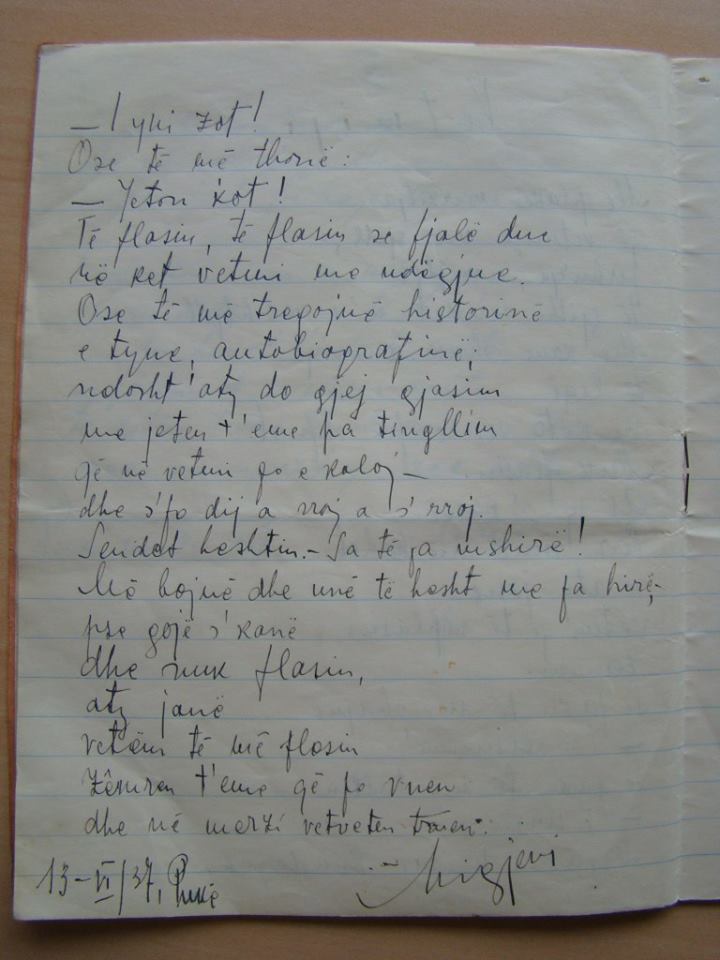 — I yni zot!
Ose të më thonë:
— Jeton kot!
Të flasin, të flasin se fjalë due
në ket vetmi me ndëgjue.
Ose të më tregojnë historinë
e tyne, autobiografinë;
ndosht'aty do gjej gjasim
me jeten t'eme pa tingllim
që në vetmi po e kaloj —
dhe s'po dij a rroj a s'rroj.
Sendet heshtin. – Sa të pa mshirë!
Më bojnë dhe unë të hesht me pa hirë,
pse gojë s'kanë
dhe nuk flasin,
aty janë
vetëm të më flasin
zêmren t'eme që po vuen
dhe në merzi vetveten truen.
13–VI/37, Pukë Migjeni